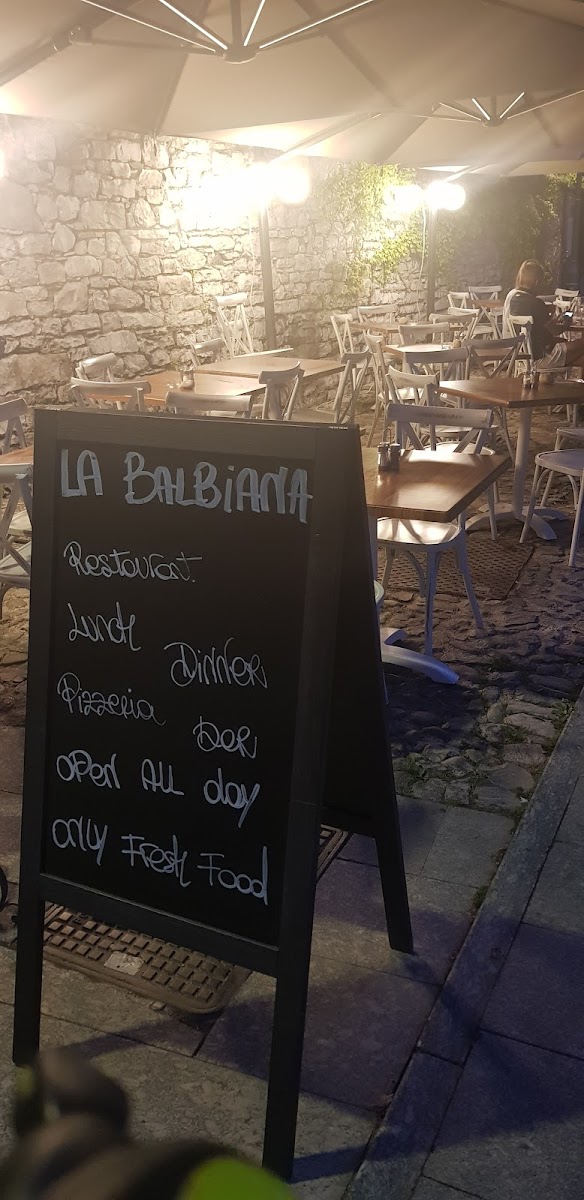 LA BALBIANA
Restaurant
Lunch
DINNER
Pizzeria
open ALL day
only Fresh Food